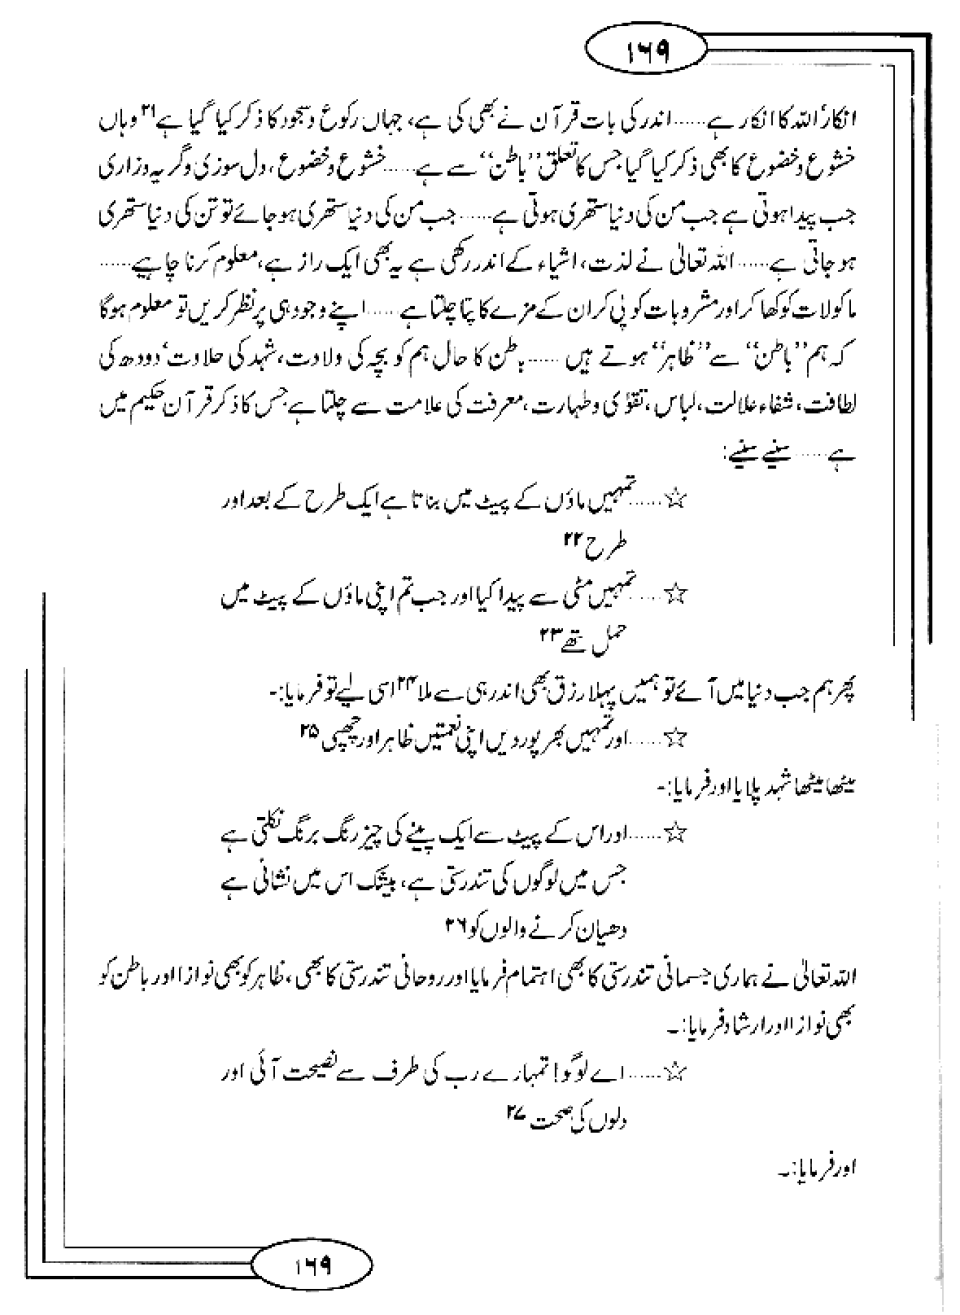 ۱۶۹
انکارُ اللہ کا انکار ہے...... اندر کی بات قرآن نے بھی کی ہے، جہاں رکوع و سجود کا ذکر کیا گیا ہے۲۱ وہاں
خشوع و خضوع کا بھی ذکر کیا گیا جس کا تعلق ’’باطن‘‘ سے ہے......خشوع و خضوع، دل سوزی و گریہ وزاری
جب پیدا ہوتی ہے جب من کی دنیا ستھری ہوتی ہے...... جب من کی دنیا ستھری ہو جائے تو تن کی دنیا ستھری
ہو جاتی ہے...... اللہ تعالیٰ نے لذت، اشیاء کے اندر رکھی ہے یہ بھی ایک راز ہے، معلوم کرنا چاہیے......
ماکولات کو کھا کر اور مشروبات کو پی کر ان کے مزے کا پتا چلتا ہے...... اپنے وجود ہی پر نظر کریں تو معلوم ہوگا
کہ ہم ’’باطن‘‘ سے ’’ظاہر‘‘ ہوتے ہیں ...... باطن کا حال ہم کو بچہ کی ولادت، شہد کی حلاوت‘ دودھ کی
لطافت، شفاء علالت، لباس، تقوٰی و طہارت، معرفت کی علامت سے چلتا ہے جس کا ذکر قرآن حکیم میں
ہے...... سنیے سنیے:
☆......تمہیں ماؤں کے پیٹ میں بناتا ہے ایک طرح کے بعد اور
طرح ۲۲
☆......تمہیں مٹی سے پیدا کیا اور جب تم اپنی ماؤں کے پیٹ میں
حمل تھے ۲۳
پھر ہم جب دنیا میں آئے تو ہمیں پہلا رزق بھی اندر ہی سے ملا ۲۴ اسی لیے تو فرمایا:-
☆......اور تمہیں بھر پور دیں اپنی نعمتیں ظاہر اور چھپی ۲۵
میٹھا میٹھا شہد پلایا اور فرمایا:-
☆......اور اس کے پیٹ سے ایک پینے کی چیز رنگ برنگ نکلتی ہے
جس میں لوگوں کی تندرستی ہے، بیشک اس میں نشانی ہے
دھیان کرنے والوں کو ۲۶
اللہ تعالیٰ نے ہماری جسمانی تندرستی کا بھی اہتمام فرمایا اور روحانی تندرستی کا بھی، ظاہر کو بھی نوازا اور باطن کو
بھی نوازا اور ارشاد فرمایا:۔
☆......اے لوگو! تمہارے رب کی طرف سے نصیحت آئی اور
دلوں کی صحت ۲۷
اور فرمایا:۔
۱۶۹